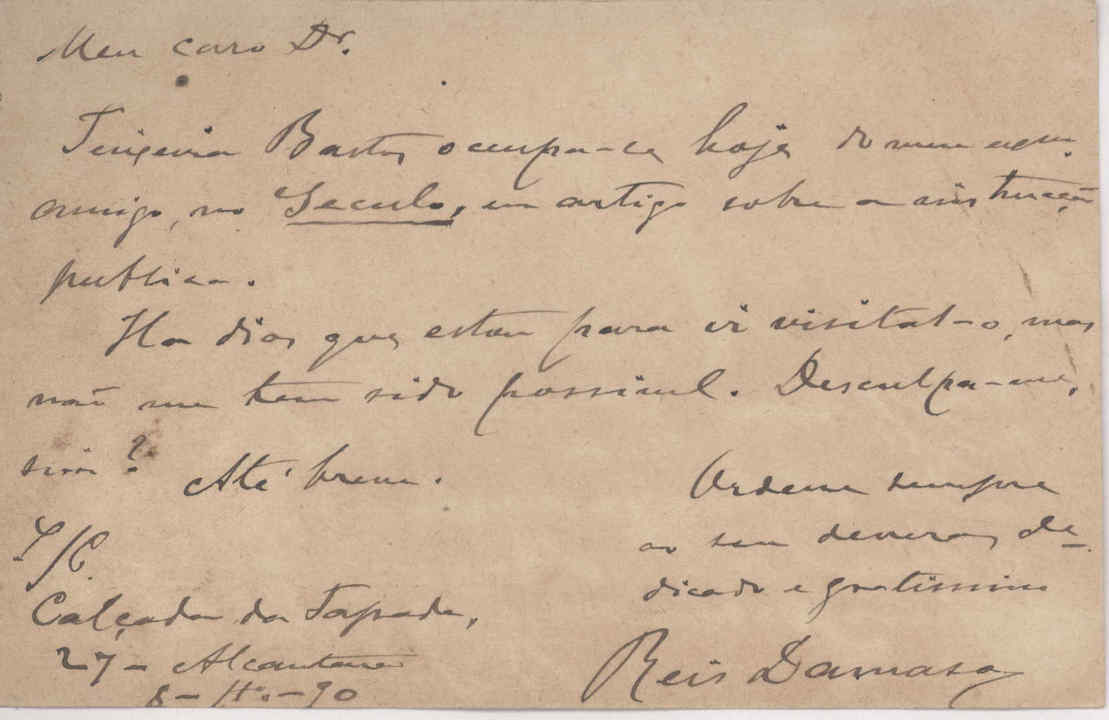 Meu caro Dr.
Teixeira Bastos occupa-se hoje do meu
amigo, no Seculo, em artigo sobre a instrucção
publica.
Ha dias que estou para ir visital-o, mas
não me tem sido possivel. Desculpa-me,
sim? Até breve.
Ordene sempre
ao seu deveras de-
dicado e gratissimo
Reis Damaso
S/C.
Calçada da Tapada,
27 - Alcantara